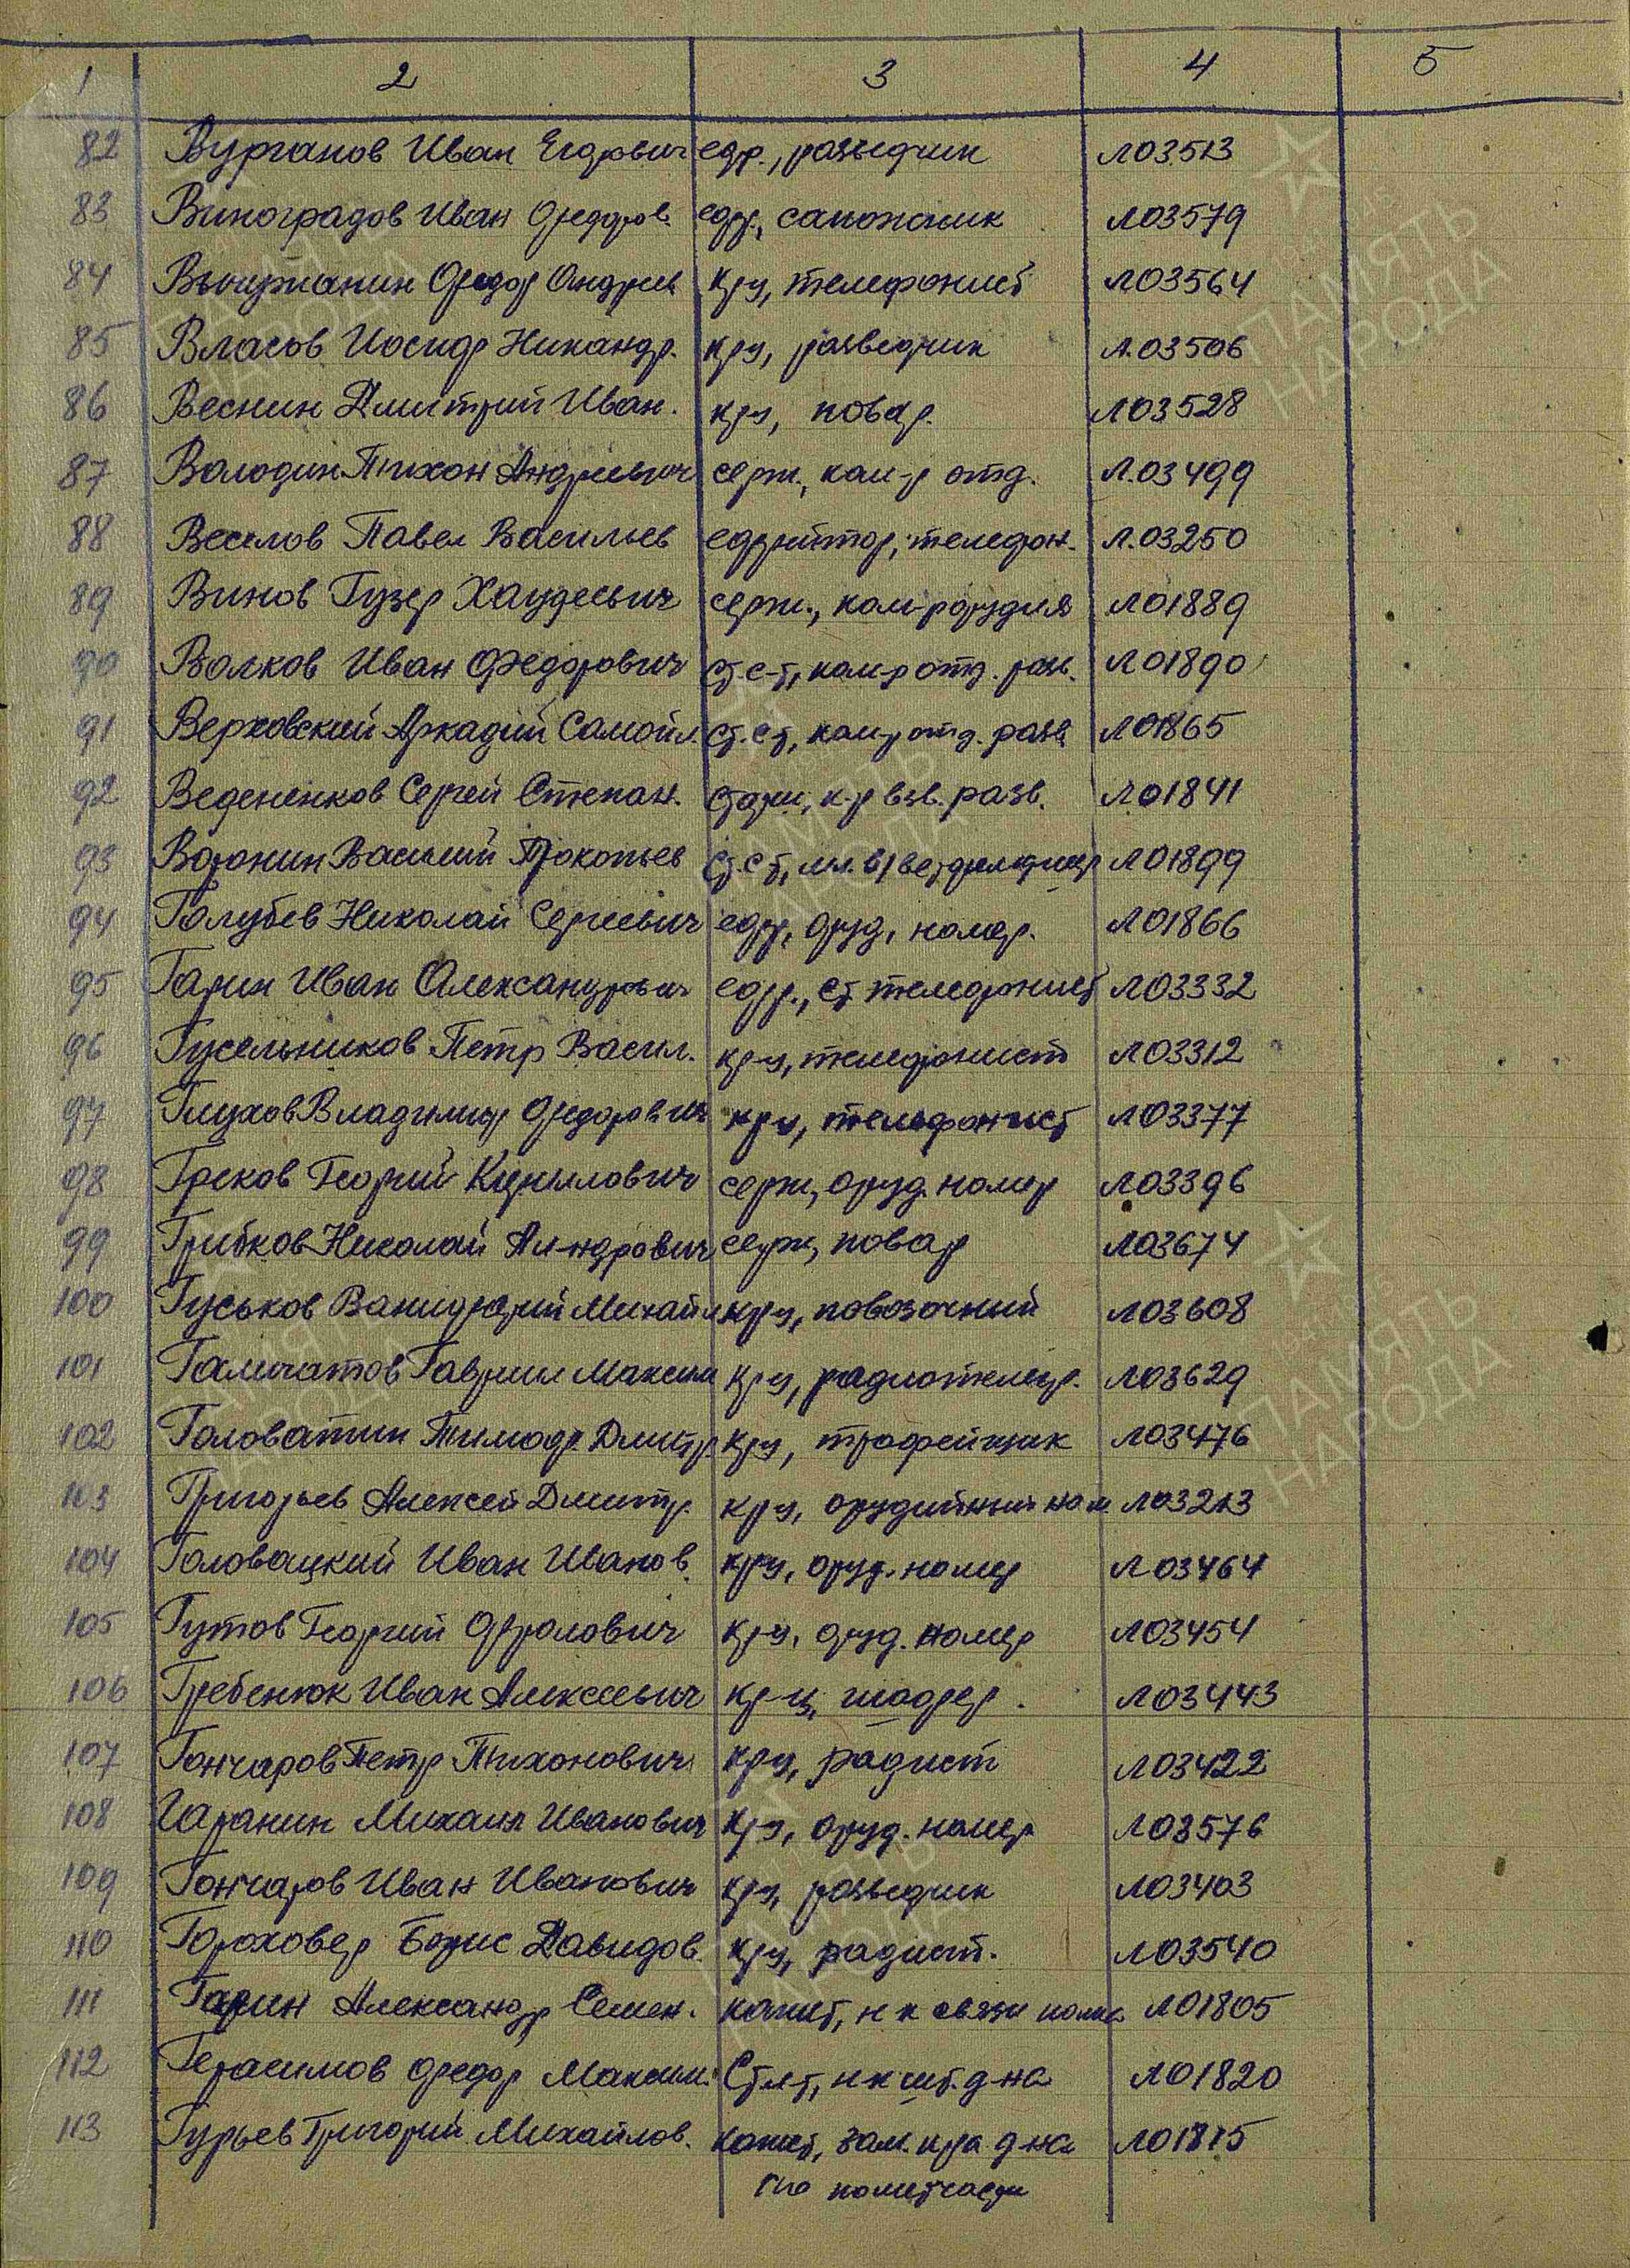 1 2 3 4 5
82 Вурганов Иван Егорович ефр., разведчик Л03513
83 Виноградов Иван Федоров. ефр., сапожник Л03579
84 Федор Андреев кр-ц, телефонист Л03564
85 Власов Иосиф Никандр. кр-ц, разведчик Л.03506
86 Веснин Дмитрий Иван. кр-ц, повар. Л03528
87 Володин Тихон Андреевич серж., ком-р отд. Л.03499
88 Веселов Павел Васильев ефрейтор, телефон. Л.03250
89 Винов Гузер серж., ком-р орудия Л01889
90 Волков Иван Федорович ст. с-т, ком-р отд. разв. Л01890
91 Верховский Аркадий Самойл. ст. с-т, ком-р отд. разв Л01865
92 Веденеиков Сергей Степан. старш, к-р взв. разв. Л01841
93 Воронин Василий Прокопьев ст. с-т, мл. в/ветфельдшер Л01899
94 Голубев Николай Сергеевич ефр, оруд, номер. Л01866
95 Гарин Иван Александрович ефр., ст телефонист Л03332
96 Гусельников Петр Васил. кр-ц, телефонист Л03312
97 Глухов Владимир Федорович кр-ц, телефонист Л03377
98 Греков Георгий Кириллович серж, оруд. номер Л03396
99 Грибков Николай Ал-ндрович серж, повар Л03674
100 Гуськов Михайл кр-ц, повозочный Л03608
101 Галичатов Гавриил Максим кр-ц, радиотелегр. Л03629
102 Головатин Тимоф Дмитр кр-ц, трофейщик Л03476
103 Григорьев Алексей Дмитр. кр-ц, орудийный ном. Л03213
104 Головацкий Иван Иванов. кр-ц, оруд. номер Л03464
105 Гутов Георгий Фролович кр-ц, оруд. номер Л03454
106 Гребенюк Иван Алексеевич кр-ц, шофер. Л03443
107 Гончаров Петр Тихонович кр-ц, радист Л03422
108 Гаранин Михаил Иванович кр-ц, оруд. номер Л03576
109 Гончаров Иван Иванович кр-ц, разведчик Л03403
110 Гороховер Борис Давидов. кр-ц, радист. Л03540
111 Гарин Александр Семен. капит, н-к связи полка Л01805
112 Герасимов Федор Максим. Ст л-т, н-к шт. д-на Л01820
113 Гурьев Григорий Михайлов. капит, зам. к-ра д-на Л01815
по политчасти